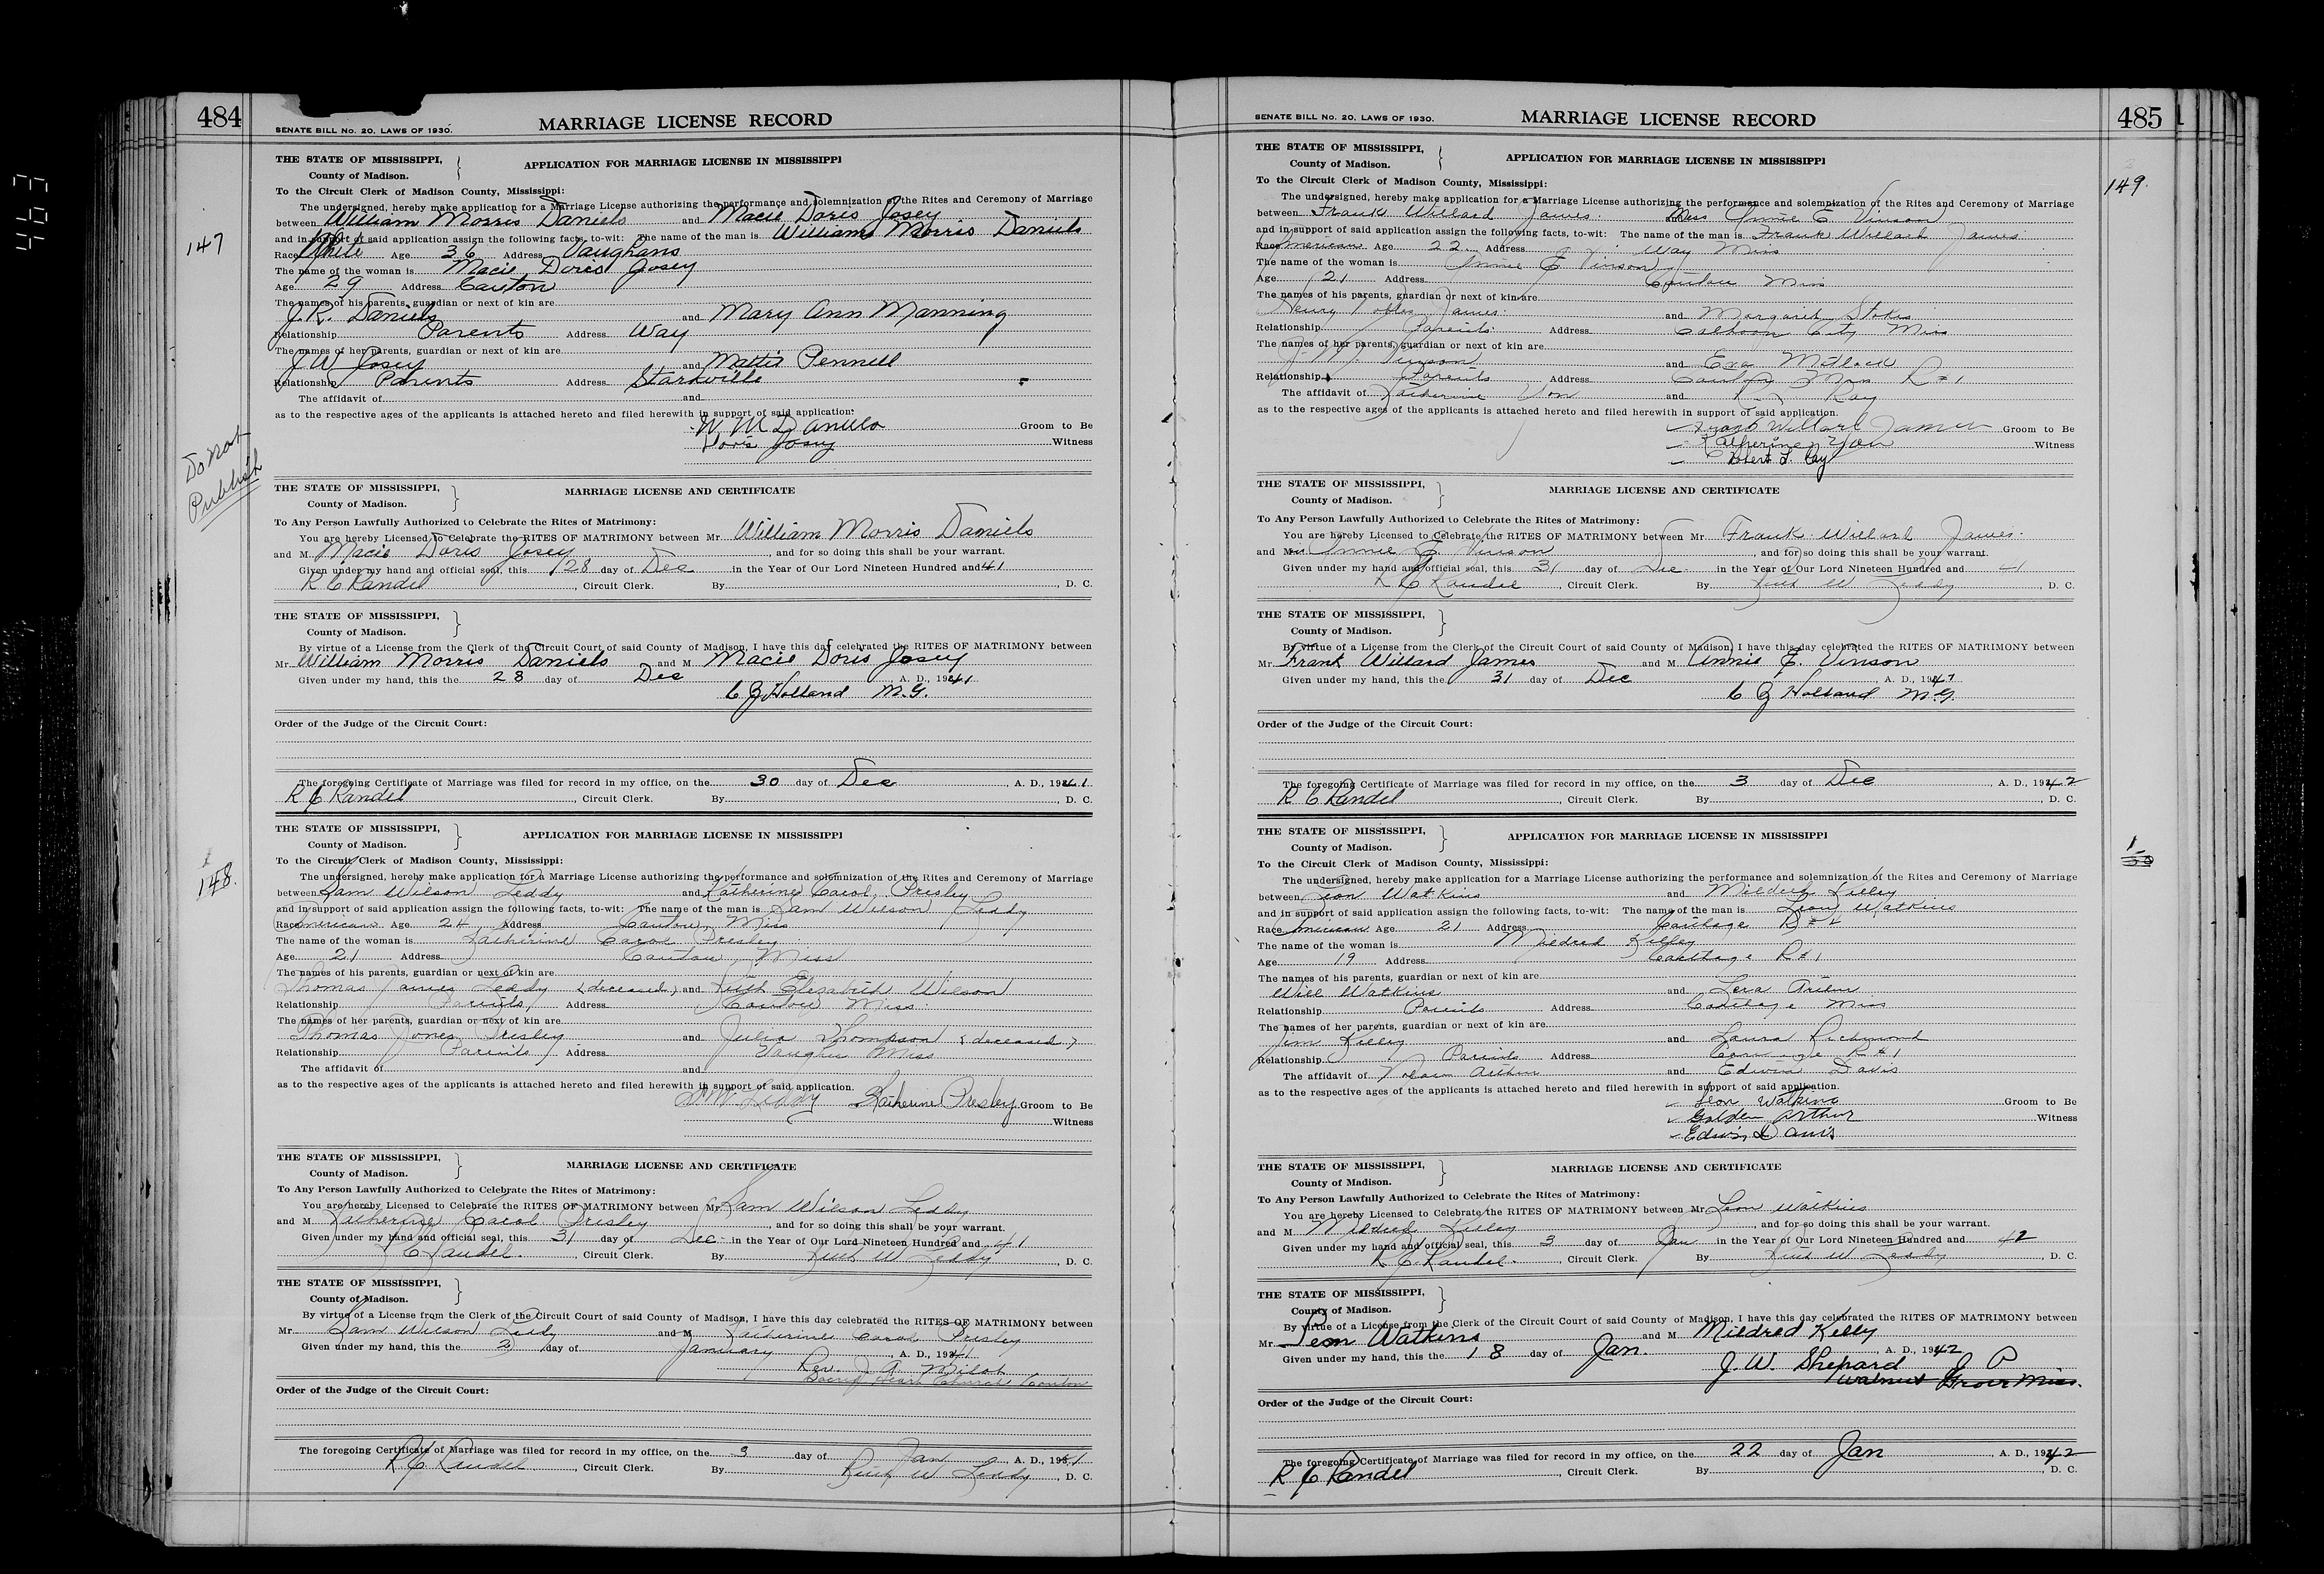 484
SENATE BILL No. 20, LAWS OF 1930.
MARRIAGE LICENSE RECORD
THE STATE OF MISSISSIPPI,
County of Madison.
APPLICATION FOR MARRIAGE LICENSE IN MISSISSIPPI
To the Circuit Clerk of Madison County, Mississippi:
The undersigned, hereby make application for a Marriage License authorizing the performance and solemnization of the Rites and Ceremony of Marriage
between William Morris Daniels and Macie Doris Josey
and in support of said application assign the following facts, to-wit: The name of the man is William Morris Daniels
147
Race White Age 36 Address Vaughans
The name of the woman is Macie Doris Josey
Age 29 Address Canton
The names of his parents, guardian or next of kin are
J. R. Daniels and Mary Ann Manning
Relationship Parents Address Way
The names of her parents, guardian or next of kin are
J W Josey and Mattie Pennell
Relationship Parents Address Starkville
The affidavit of and
as to the respective ages of the applicants is attached hereto and filed herewith in support of said application.
W. M Daniels Groom to Be
Doris Josey Witness
Do not
Publish
THE STATE OF MISSISSIPPI,
County of Madison.
MARRIAGE LICENSE AND CERTIFICATE
To Any Person Lawfully Authorized to Celebrate the Rites of Matrimony:
You are hereby Licensed to Celebrate the RITES OF MATRIMONY between Mr. William Morris Daniels
and M Macie Doris Josey, and for so doing this shall be your warrant.
Given under my hand and official seal, this 28 day of Dec in the Year of Our Lord Nineteen Hundred and 41
R C Randel, Circuit Clerk. By , D. C.
THE STATE OF MISSISSIPPI,
County of Madison.
By virtue of a License from the Clerk of the Circuit Court of said County of Madison, I have this day celebrated the RITES OF MATRIMONY between
Mr. William Morris Daniels and M Macie Doris Josey
Given under my hand, this the 28 day of Dec, A. D., 1941
C J Holland M.G.
Order of the Judge of the Circuit Court:
The foregoing Certificate of Marriage was filed for record in my office, on the 30 day of Dec, A. D., 1941
R C Randel, Circuit Clerk. By , D. C.
THE STATE OF MISSISSIPPI,
County of Madison.
APPLICATION FOR MARRIAGE LICENSE IN MISSISSIPPI
To the Circuit Clerk of Madison County, Mississippi:
148.
The undersigned, hereby make application for a Marriage License authorizing the performance and solemnization of the Rites and Ceremony of Marriage
between Sam Wilson Leddy and Katherine Carol Presley
and in support of said application assign the following facts, to-wit: The name of the man is Sam Wilson Leddy
Race American Age 24 Address Canton, Miss
The name of the woman is Katherine Carol Presley
Age 21 Address Canton, Miss
The names of his parents, guardian or next of kin are
Thomas James Leddy (deceased) and Ruth Elizabeth Wilson
Relationship Parents, Address Canton Miss.
The names of her parents, guardian or next of kin are
Thomas Jones Presley and Julia Thompson (deceased)
Relationship Parents Address Vaughn Miss
The affidavit of and
as to the respective ages of the applicants is attached hereto and filed herewith in support of said application.
S. W Leddy Katherine Presley Groom to Be
Witness
THE STATE OF MISSISSIPPI,
County of Madison.
MARRIAGE LICENSE AND CERTIFICATE
To Any Person Lawfully Authorized to Celebrate the Rites of Matrimony:
You are hereby Licensed to Celebrate the RITES OF MATRIMONY between Mr. Sam Wilson Leddy
and M Katherine Carol Presley, and for so doing this shall be your warrant.
Given under my hand and official seal, this 31 day of Dec in the Year of Our Lord Nineteen Hundred and 41
R C Randel., Circuit Clerk. By Ruth W Leddy, D. C.
THE STATE OF MISSISSIPPI,
County of Madison.
By virtue of a License from the Clerk of the Circuit Court of said County of Madison, I have this day celebrated the RITES OF MATRIMONY between
Mr. Sam Wilson Leddy and M Katherine Carol Presley
Given under my hand, this the 2 day of January, A. D., 1941
Rev. J. A. Milot
Sacred Heart Church Canton
Order of the Judge of the Circuit Court:
The foregoing Certificate of Marriage was filed for record in my office, on the 3 day of Jan, A. D., 1941
R C Randel, Circuit Clerk. By Ruth W Leddy, D. C.
485
SENATE BILL No. 20, LAWS OF 1930.
MARRIAGE LICENSE RECORD
THE STATE OF MISSISSIPPI,
County of Madison.
APPLICATION FOR MARRIAGE LICENSE IN MISSISSIPPI
To the Circuit Clerk of Madison County, Mississippi:
149.
The undersigned, hereby make application for a Marriage License authorizing the performance and solemnization of the Rites and Ceremony of Marriage
between Frank Willard James and Miss Annie E Vinson
and in support of said application assign the following facts, to-wit: The name of the man is Frank Willard James
Race American Age 22 Address Way Miss
The name of the woman is Annie E Vinson
Age 21 Address Canton Miss
The names of his parents, guardian or next of kin are
Henry James and Margaret Stokes
Relationship Parents Address Calhoon City Miss
The names of her parents, guardian or next of kin are
Vinson and Eva Matlock
Relationship Parents Address Canton Miss R#1
The affidavit of Katherine Yon and Ray
as to the respective ages of the applicants is attached hereto and filed herewith in support of said application.
Frank Willard James Groom to Be
Katherine Yon Witness
Robert L. Ray
THE STATE OF MISSISSIPPI,
County of Madison.
MARRIAGE LICENSE AND CERTIFICATE
To Any Person Lawfully Authorized to Celebrate the Rites of Matrimony:
You are hereby Licensed to Celebrate the RITES OF MATRIMONY between Mr. Frank Willard James.
and Miss Annie E Vinson, and for so doing this shall be your warrant.
Given under my hand and official seal, this 31 day of Dec in the Year of Our Lord Nineteen Hundred and 41
R C Randel, Circuit Clerk. By Ruth W Leddy, D. C.
THE STATE OF MISSISSIPPI,
County of Madison.
By virtue of a License from the Clerk of the Circuit Court of said County of Madison, I have this day celebrated the RITES OF MATRIMONY between
Mr. Frank Willard James and M Annie E. Vinson
Given under my hand, this the 31 day of Dec, A. D., 1941
C J Holland M.G.
Order of the Judge of the Circuit Court:
The foregoing Certificate of Marriage was filed for record in my office, on the 3 day of Dec, A. D., 1942
R C Randel, Circuit Clerk. By , D. C.
THE STATE OF MISSISSIPPI,
County of Madison.
APPLICATION FOR MARRIAGE LICENSE IN MISSISSIPPI
1
To the Circuit Clerk of Madison County, Mississippi:
The undersigned, hereby make application for a Marriage License authorizing the performance and solemnization of the Rites and Ceremony of Marriage
between Leon Watkins and Mildred Kelley
and in support of said application assign the following facts, to-wit: The name of the man is Leon Watkins
Race American Age 21 Address Carthage R#4
The name of the woman is Mildred Kelley
Age 19 Address Carthage R#1
The names of his parents, guardian or next of kin are
Will Watkins and Lera
Relationship Parents Address Carthage Miss
The names of her parents, guardian or next of kin are
Jim Kelley and Laura Richmond
Relationship Parents Address Carthage R#1
The affidavit of Arthur and Edwin Davis
as to the respective ages of the applicants is attached hereto and filed herewith in support of said application.
Leon Watkins Groom to Be
Golden Arthur Witness
Edwin Davis
THE STATE OF MISSISSIPPI,
County of Madison.
MARRIAGE LICENSE AND CERTIFICATE
To Any Person Lawfully Authorized to Celebrate the Rites of Matrimony:
You are hereby Licensed to Celebrate the RITES OF MATRIMONY between Mr. Leon Watkins
and M Mildred Kelley, and for so doing this shall be your warrant.
Given under my hand and official seal, this 3 day of Jan in the Year of Our Lord Nineteen Hundred and 42
R C Randel., Circuit Clerk. By Ruth W Leddy, D. C.
THE STATE OF MISSISSIPPI,
County of Madison.
By virtue of a License from the Clerk of the Circuit Court of said County of Madison, I have this day celebrated the RITES OF MATRIMONY between
Mr. Leon Watkins and M Mildred Kelly
Given under my hand, this the 18 day of Jan., A. D., 1942
J. W. Shepard J P
Walnut Grove Miss.
Order of the Judge of the Circuit Court:
The foregoing Certificate of Marriage was filed for record in my office, on the 22 day of Jan, A. D., 1942
R C Randel, Circuit Clerk. By , D. C.
463